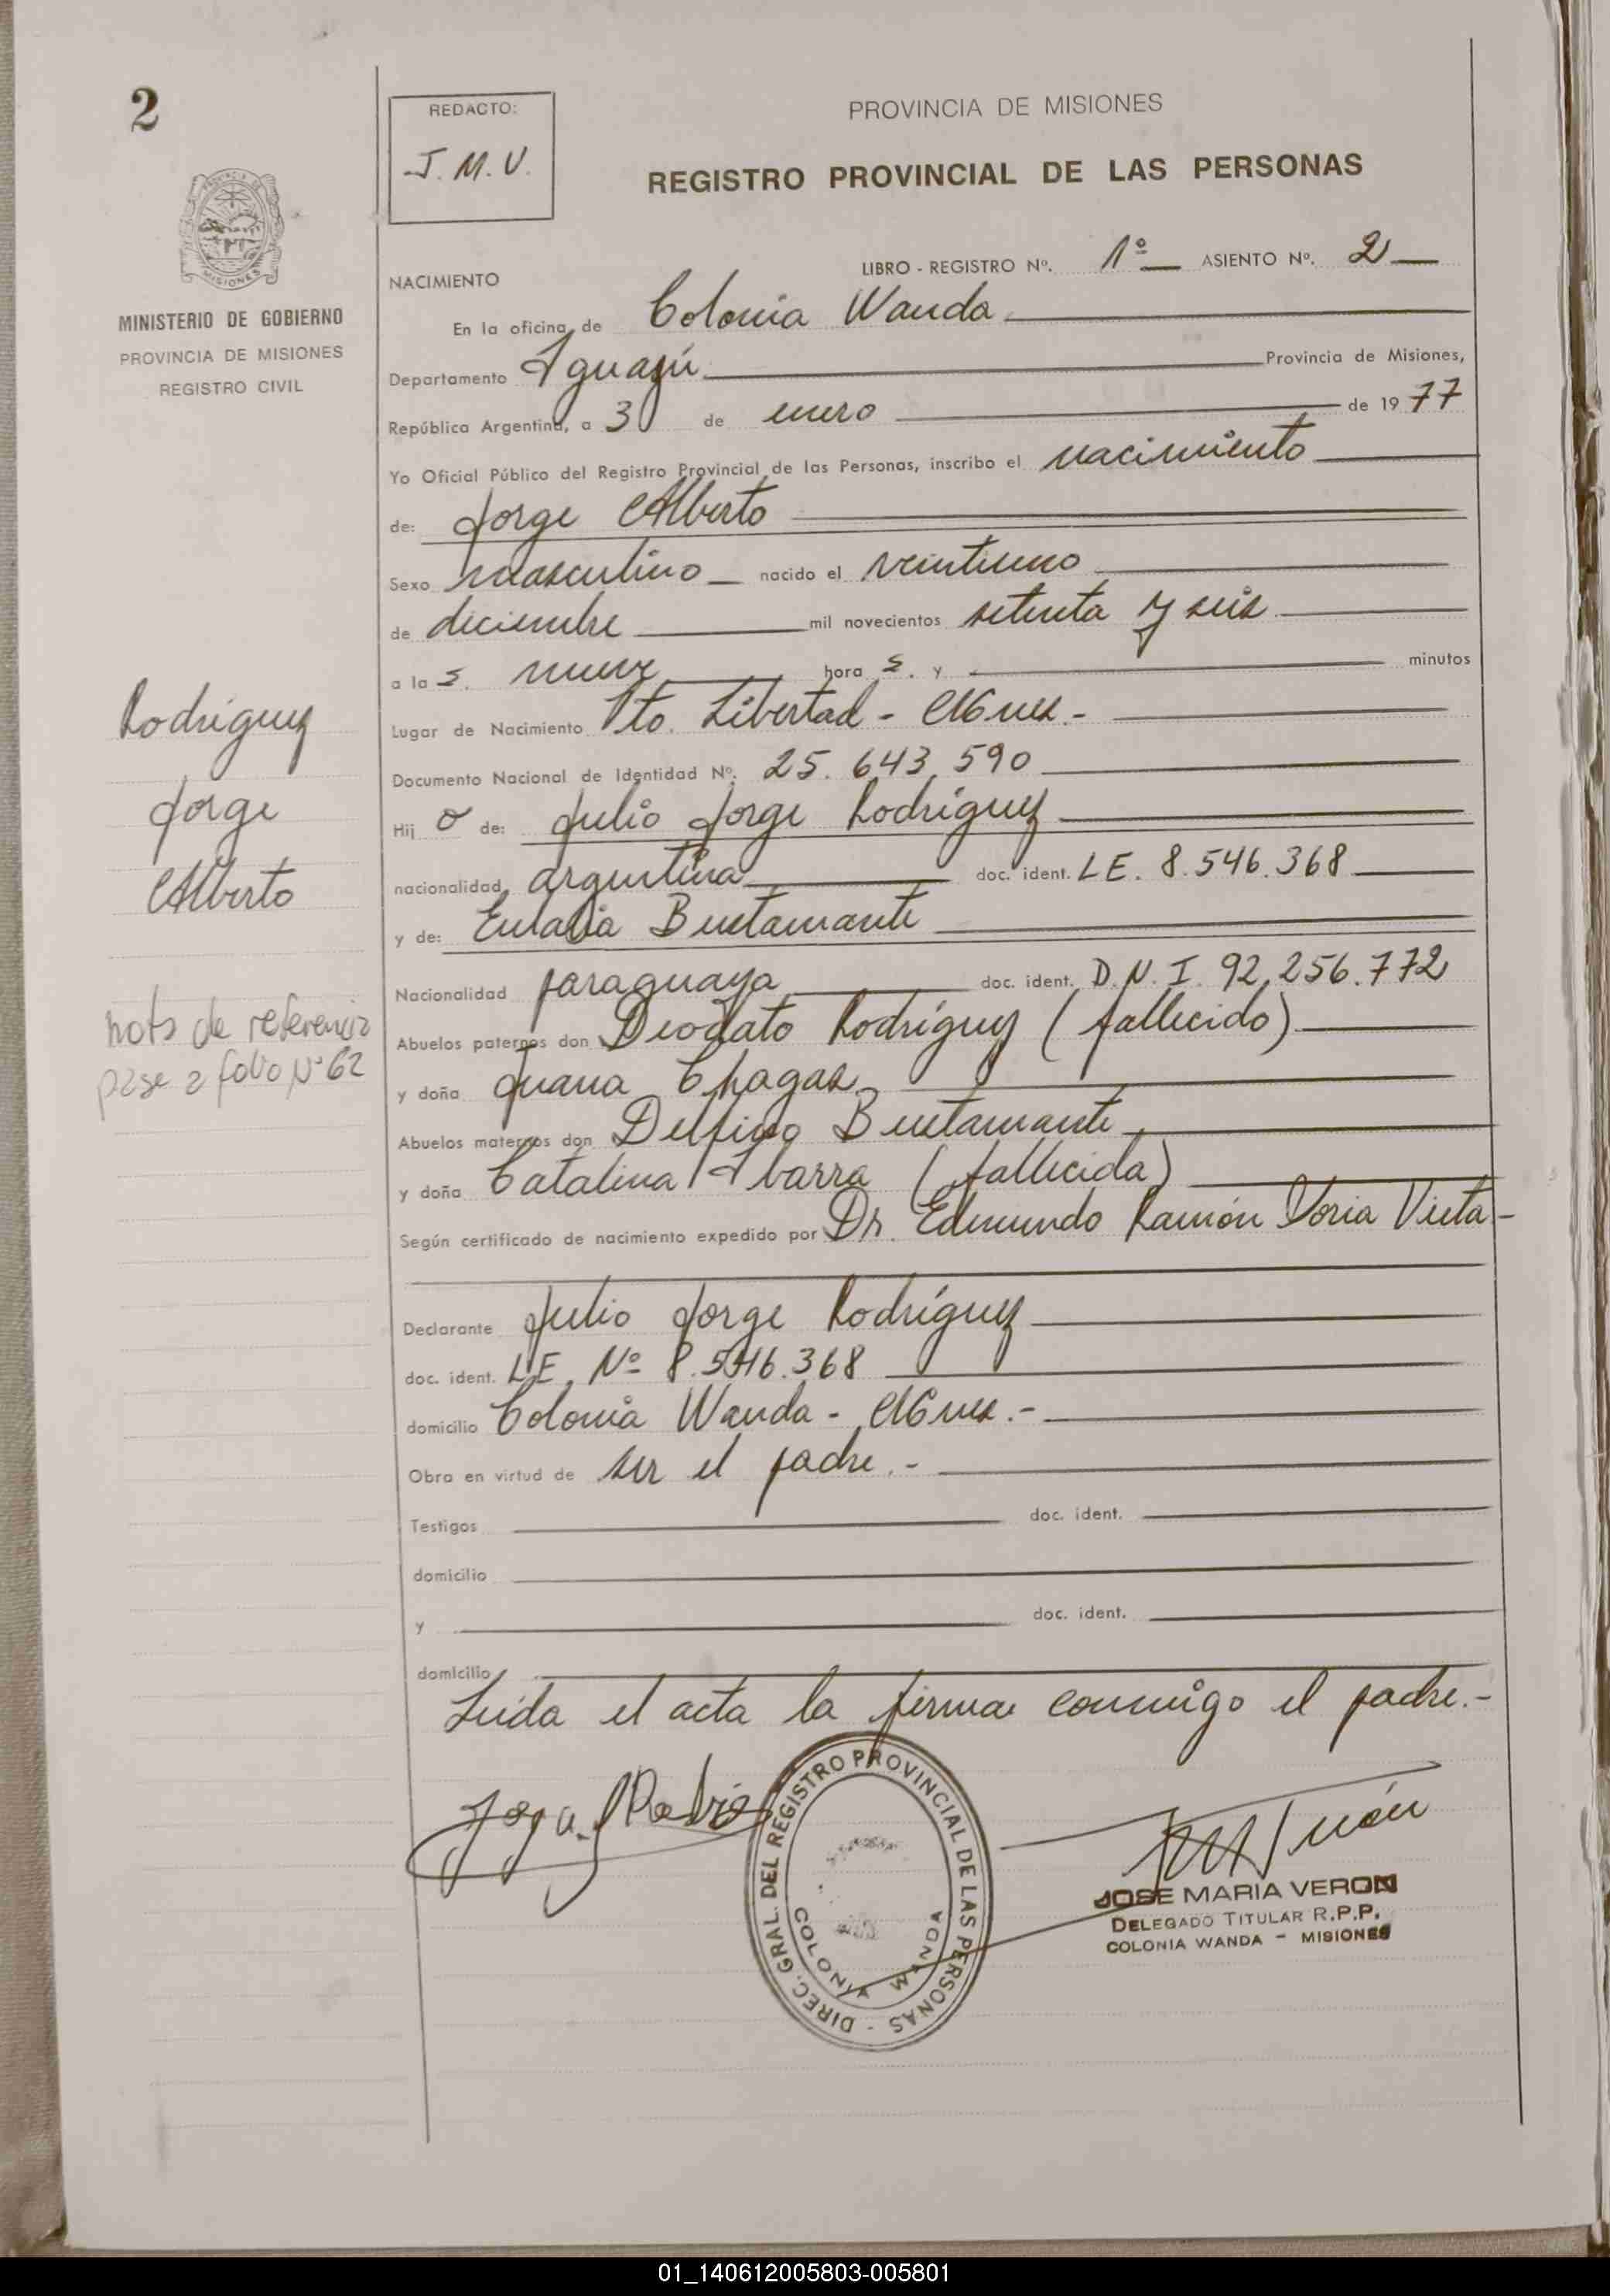 2
REDACTO:
J. M. V.
PROVINCIA DE MISIONES
REGISTRO PROVINCIAL DE LAS PERSONAS
MISIONES
MINISTERIO DE GOBIERNO
PROVINCIA DE MISIONES
REGISTRO CIVIL
LIBRO - REGISTRO Nº. 1º ASIENTO Nº. 2
NACIMIENTO
En la oficina de Colonia Wanda
Departamento Iguazú Provincia de Misiones,
República Argentina, a 3 de enero de 1977
Yo Oficial Público del Registro Provincial de las Personas, inscribo el nacimiento
de: Jorge Alberto
Sexo masculino nacido el veintiuno
de diciembre mil novecientos setenta y seis
a la s. nueve hora s. y minutos
Lugar de Nacimiento Pto. Libertad - Mnes.-
Documento Nacional de Identidad Nº. 25.643.590
Hij o de: Julio Jorge Rodríguez
nacionalidad argentina doc. ident. L E. 8.546.368
y de: Eulalia Bustamante
Nacionalidad paraguaya doc. ident. D.N.I. 92.256.772
Abuelos paternos don Deodato Rodríguez (fallecido)
y doña Juana Chagas
Abuelos maternos don Delfino Bustamante
y doña Catalina Ibarra (fallecida)
Según certificado de nacimiento expedido por Dr. Edmundo Ramón Doria Vieta-
Declarante Julio Jorge Rodríguez
doc. ident. L.E. Nº 8.546.368
domicilio Colonia Wanda - Mnes.-
Obra en virtud de ser el padre.-
Testigos doc. ident.
domicilio
y doc. ident.
domicilio
Leida el acta la firma conmigo el padre.-
Rodríguez
Jorge
Alberto
nota de referencia
pase a folio Nº 62
DIREC. GRAL. DEL REGISTRO PROVINCIAL DE LAS PERSONAS -
COLONIA WANDA
JOSE MARIA VERON
DELEGADO TITULAR R.P.P.
COLONIA WANDA - MISIONES
01_140612005803-005801